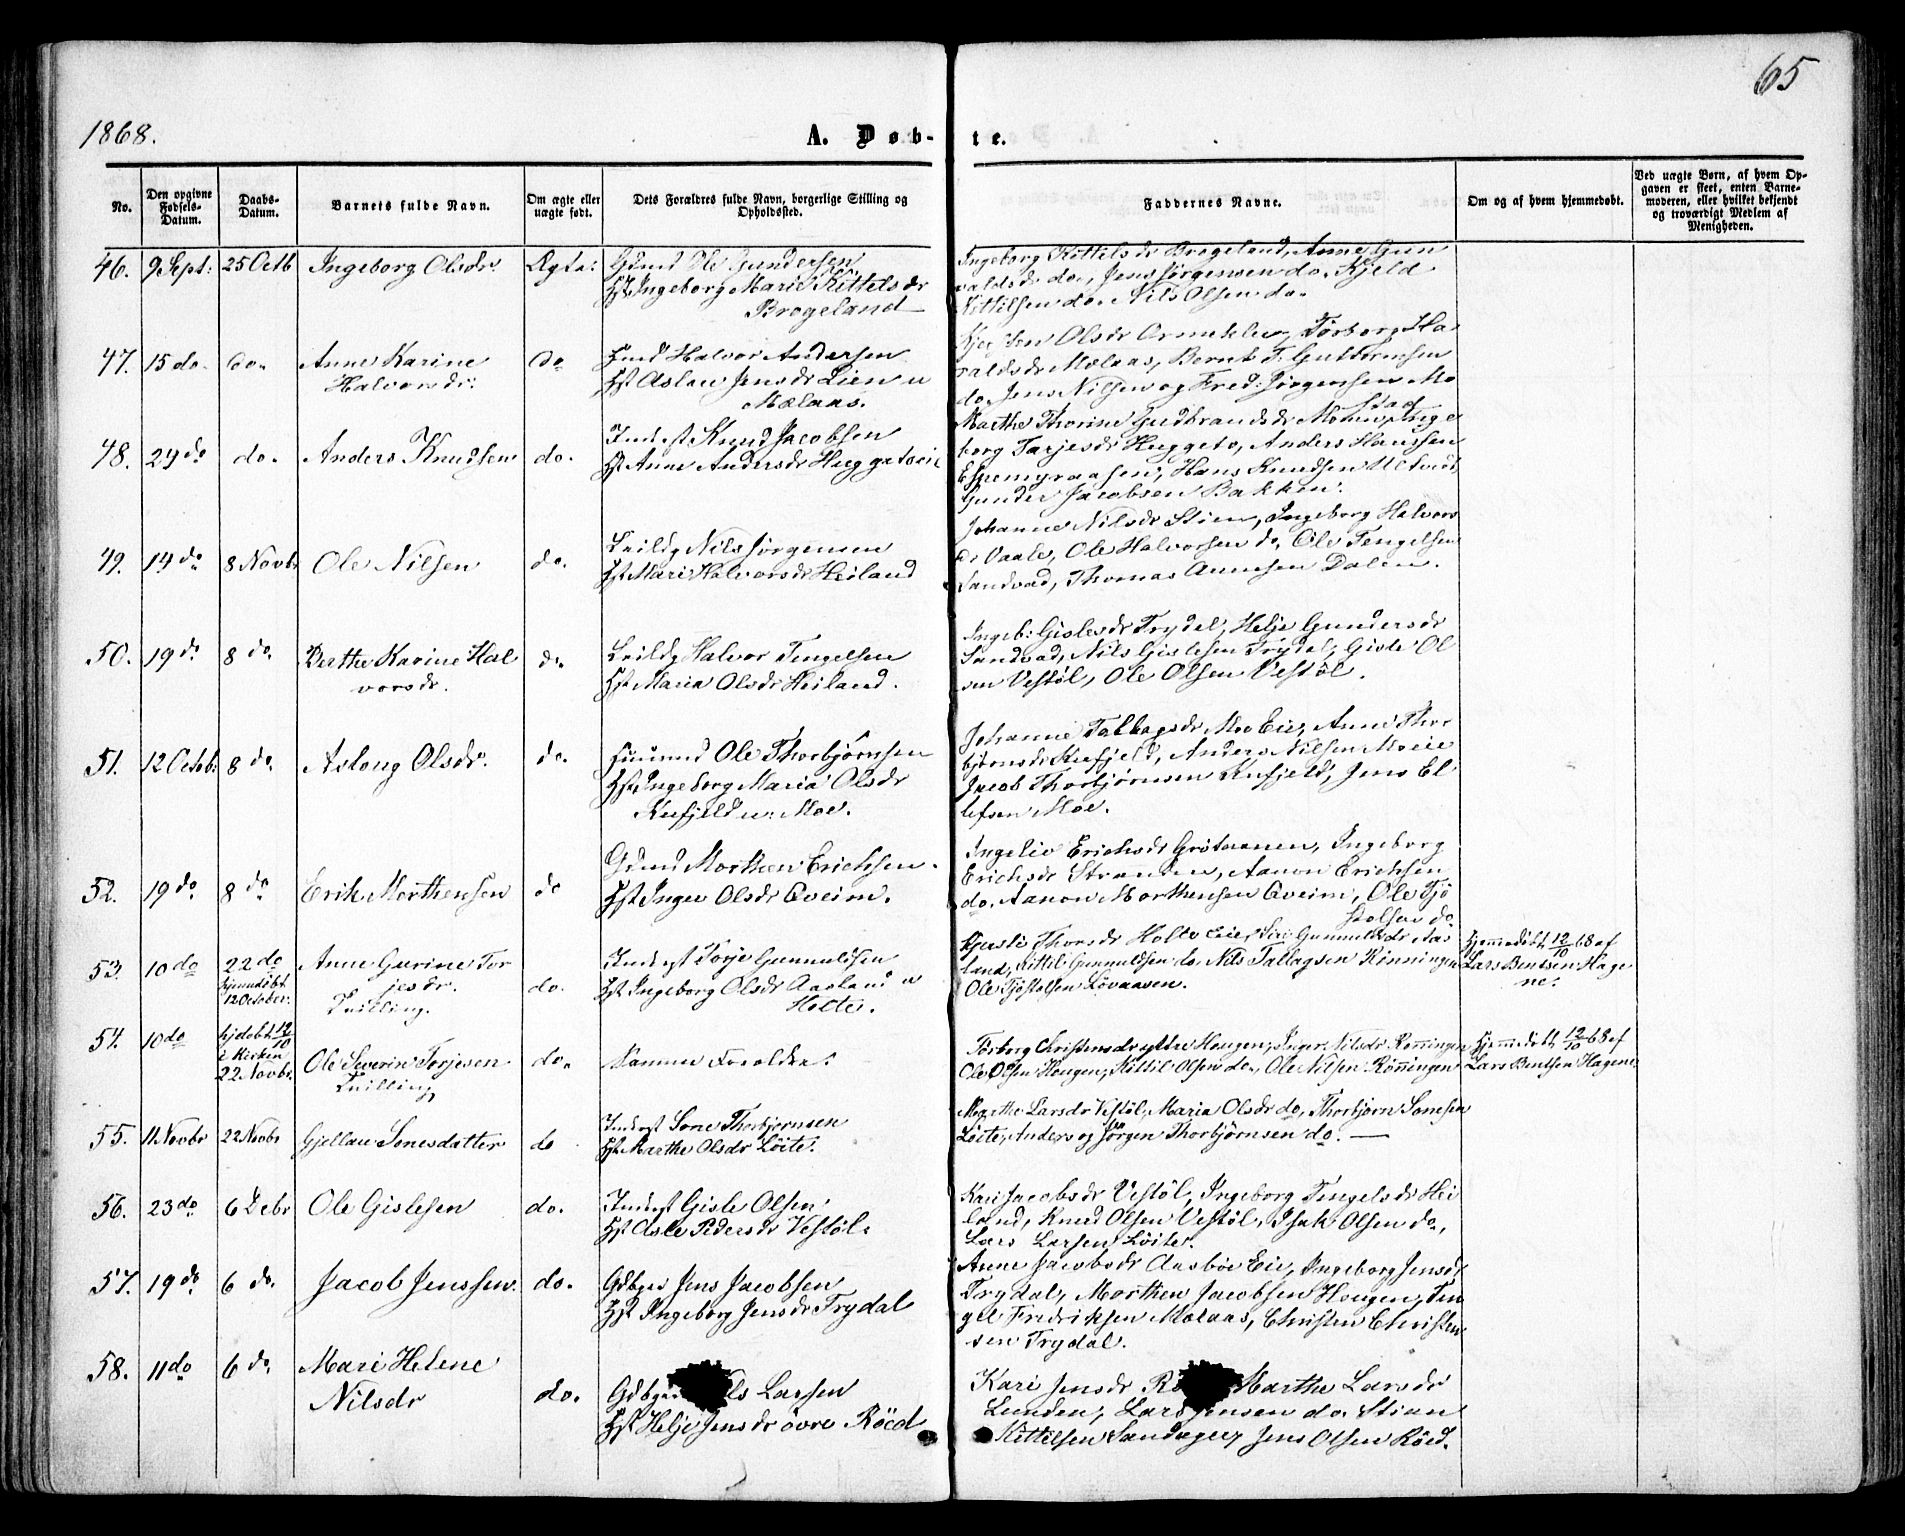 65
1868.
A. Døb-te.
No.
Den opgivne Fødsels-Datum.
Daabs-Datum.
Barnets fulde Navn.
Om ægte eller uægte født.
Dets Forældres fulde Navn, borgerlige Stilling og Opholdssted.
Faddernes Navne.
Om og af hvem hjemmedøbt.
Ved uægte Børn, af hvem Opgaven er skeet, enten Barnemoderen, eller hvilket bekjendt og troværdigt Medlem af Menigheden.
46. 9 Sept: 25 Octb Ingeborg Olsdr. Ægte:
Gdmd Ole Gundersen
Hst Ingeborg Marie Kittelsdr
Brogeland
Ingeborg Kittelsdr Brogeland, Anne Gun
valdsdr do, Jens Jørgensen do. Kjeld
Kittilsen do. Nils Olsen do.
47. 15 do. do. Anne Karine
Halvorsdr: do
Halvor Andersen
Hst Aslau Jensdr Lien u
Mælaas.
Olsdr Torborg Ha
raldsdr Mælaas, Bernt T. Guttormsen
do. Jens Nilsen og Fred: Jørgensen Mo
48. 29 do do. Anders Knudsen do.
Inderst Knud Jacobsen
Hst Anne Andersdr Huggeto
Marthe Thorine Gudbrandsdr Moen, Inge
borg Tarjesdr Huggeto, Anders Hanssen
Espemyraasen, Hans Knudsen
Gunder Jacobsen Bakken.
49. 14 do 8 Novbr Ole Nilsen do.
Leildg Nils Jørgensen
Hst Mari Halvorsdr Heiland
Johanne Nilsdr Stien, Ingeborg Halvors
dr Vaale, Ole Halvorsen do, Ole Tengelsen
Sandvad, Thomas Aunesen Dalen.
50. 19 do 8 do. Berthe Karine Hal
vorsdr. do.
Leildg Halvor Tengelsen
Hst Maria Olsdr Heiland.
Ingeb: Gislesdr Trydal, Helje Gundersdr
Sandvad, Nils Gislesen Trydal, Gisle Ol
sen Vestøl, Ole Olsen Vestøl.
51. 12 Octob: 8 do. Aslaug Olsdr. do.
Ole Thorbjørnsen
Hst Ingeborg Maria Olsdr
Knefjeld u: Moe.
Johanne Tallagsdr. Moe Eie, Anne Thor
bjørnsdr Knefjeld, Anders Nilsen Moeeie
Jacob Thorbjørnsen Knefjeld, Jens El
lefsen Moe.
52. 19 do 8 do Erik Morthensen do
Gdmd Morthen Erichsen.
Hst Inger Olsdr Eveim.
Ingeliv Erichsdr Grötaanen, Ingeborg
Erichsdr Stranden, Aanon Erichsen
do. Aanon Morthensen Eveim, Ole Tjö
stolsen do
53. 10 do 22 do
hjemmedöbt
12 October. Anne Gurine Tor
jesdr.
Tvilling. do.
Inderst Torje Gunnuldsen
Hst Ingeborg Olsdr Aasland u
Holte.
Kjersti Thorsdr Holte Eie, Siri Gunnuldsdr Aas
land, Kittil Gunnuldsen do. Nils Tallagsen Rönningen
Ole Tjöstolsen Lövaasen.
Hjemmedöbt 12/10 68 af
Lars Bentsen Hage
ne.
54. 10 do hjdöbt 12/10
i Kirken
22 Novbr. Ole Severin Torjesen
Tvilling do.
Samme Forældre.
Torborg Christensdr ytre Hougen, Inger Nilsdr Rönningen
Ole Olsen Hougen, Kittil Olsen do., Ole Nilsen Rönningen
Hjemmedöbt 12/10 68 af
Lars Bentsen Hagene
55. 11 Novbr 22 Novbr Gjellau Sonesdatter do
Inderst Sone Thorbjørnsen
Hst Marthe Olsdr Löite.
Marthe Larsdr Vestöl, Maria Olsdr do, Thorbjørn Sonesen
Löite, Anders og Jörgen Thorbjørnsen do. —
56. 23 do 6 Debr Ole Gislesen do.
Inderst Gisle Olsen
Hst Asle Pedersdr Vestöl.
Kari Jacobsdr Vestöl, Ingeborg Tengelsdr Hei
land, Knud Olsen Vestöl, Isak Olsen do,
Lars Larsen Löite.
57. 19 do 6 do. Jacob Jenssen. do.
Gdbger Jens Jacobsen
Hst Ingeborg Jensdr Trydal
Anne Jacobsdr Aasböe Eie, Ingeborg Jensdr
Trydal, Morthen Jacobsen Hougen, Ten
gel Fredriksen Mælaas, Christen Christen
sen Trydal.
58. 11 do 6 do. Mari Helene
Nilsdr do.
Gdbger Nils Larsen
Hst Helje Jensdr övre Röed
Kari Jensdr Marthe Larsdr
Lunden, Lars Jensen do. Stian
Kittilsen Sandager, Jens Olsen Röed.